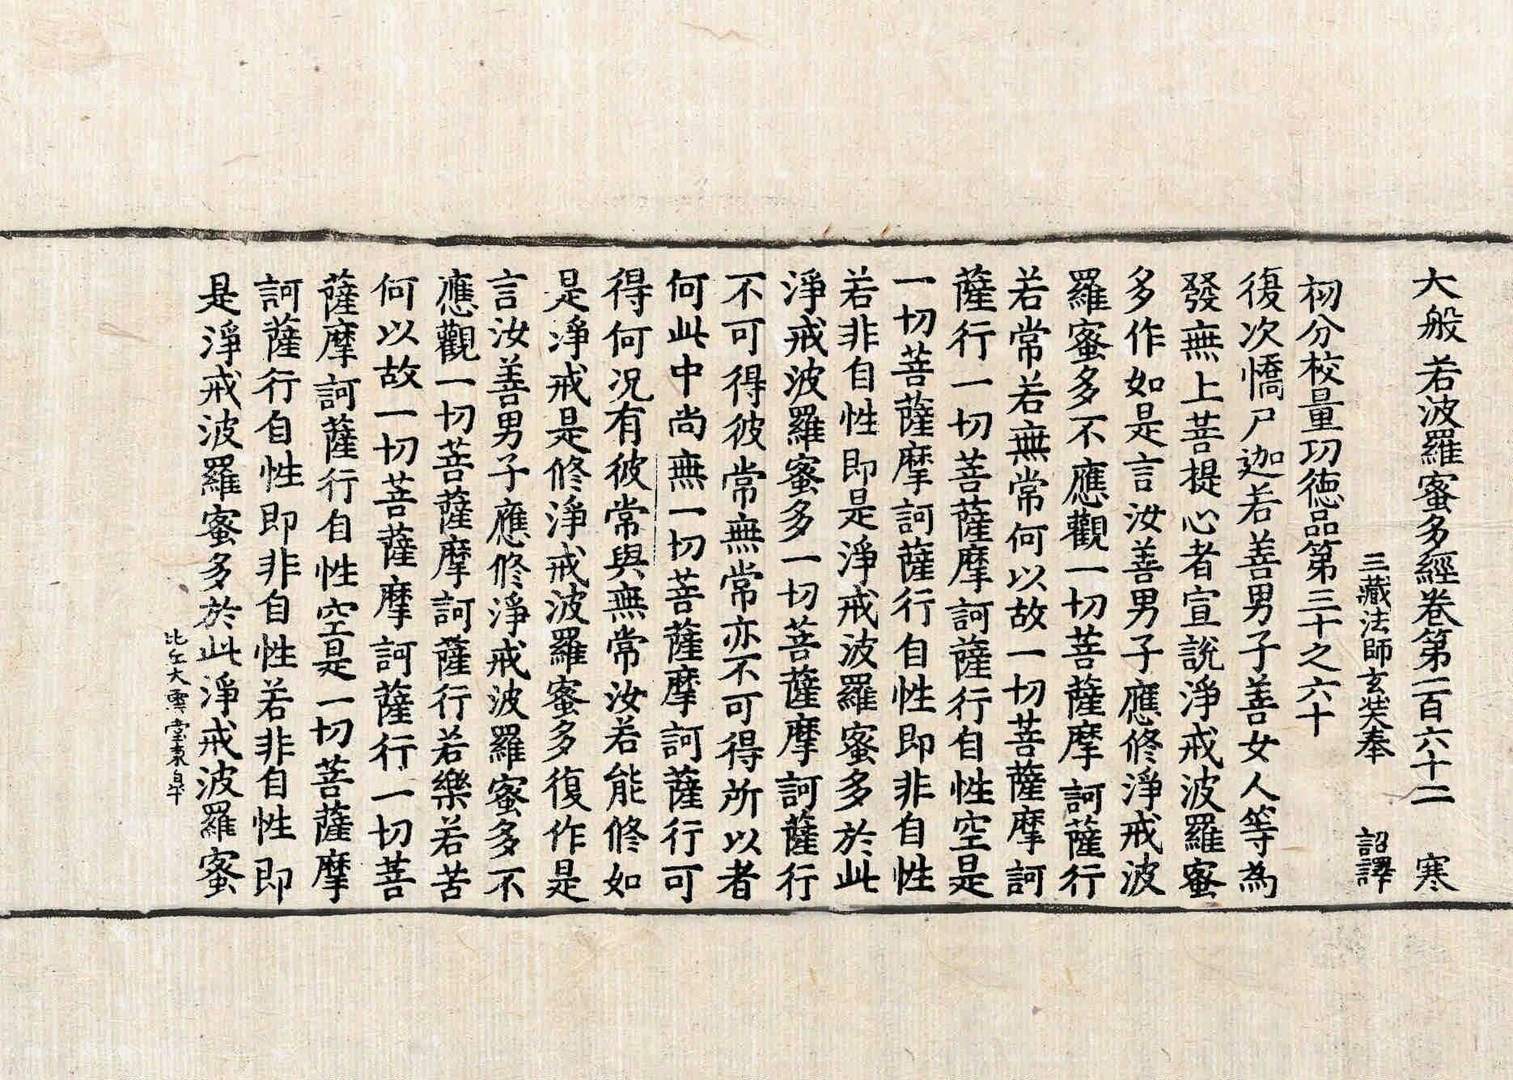 大般若波羅蜜多經卷第一百六十二 寒
三藏法師玄奘奉 詔譯
初分校量功德品第三十之六十
復次憍尸迦若善男子善女人等為
發無上菩提心者宣說淨戒波羅蜜
多作如是言汝善男子應修淨戒波
羅蜜多不應觀一切菩薩摩訶薩行
若常若無常何以故一切菩薩摩訶
薩行一切菩薩摩訶薩行自性空是
一切菩薩摩訶薩行自性即非自性
若非自性即是淨戒波羅蜜多於此
淨戒波羅蜜多一切菩薩摩訶薩行
不可得彼常無常亦不可得所以者
何此中尚無一切菩薩摩訶薩行可
得何況有彼常與無常汝若能修如
是淨戒是修淨戒波羅蜜多復作是
言汝善男子應修淨戒波羅蜜多不
應觀一切菩薩摩訶薩行若樂若苦
何以故一切菩薩摩訶薩行一切菩
薩摩訶薩行自性空是一切菩薩摩
訶薩行自性即非自性若非自性即
是淨戒波羅蜜多於此淨戒波羅蜜
比丘大雲堂東